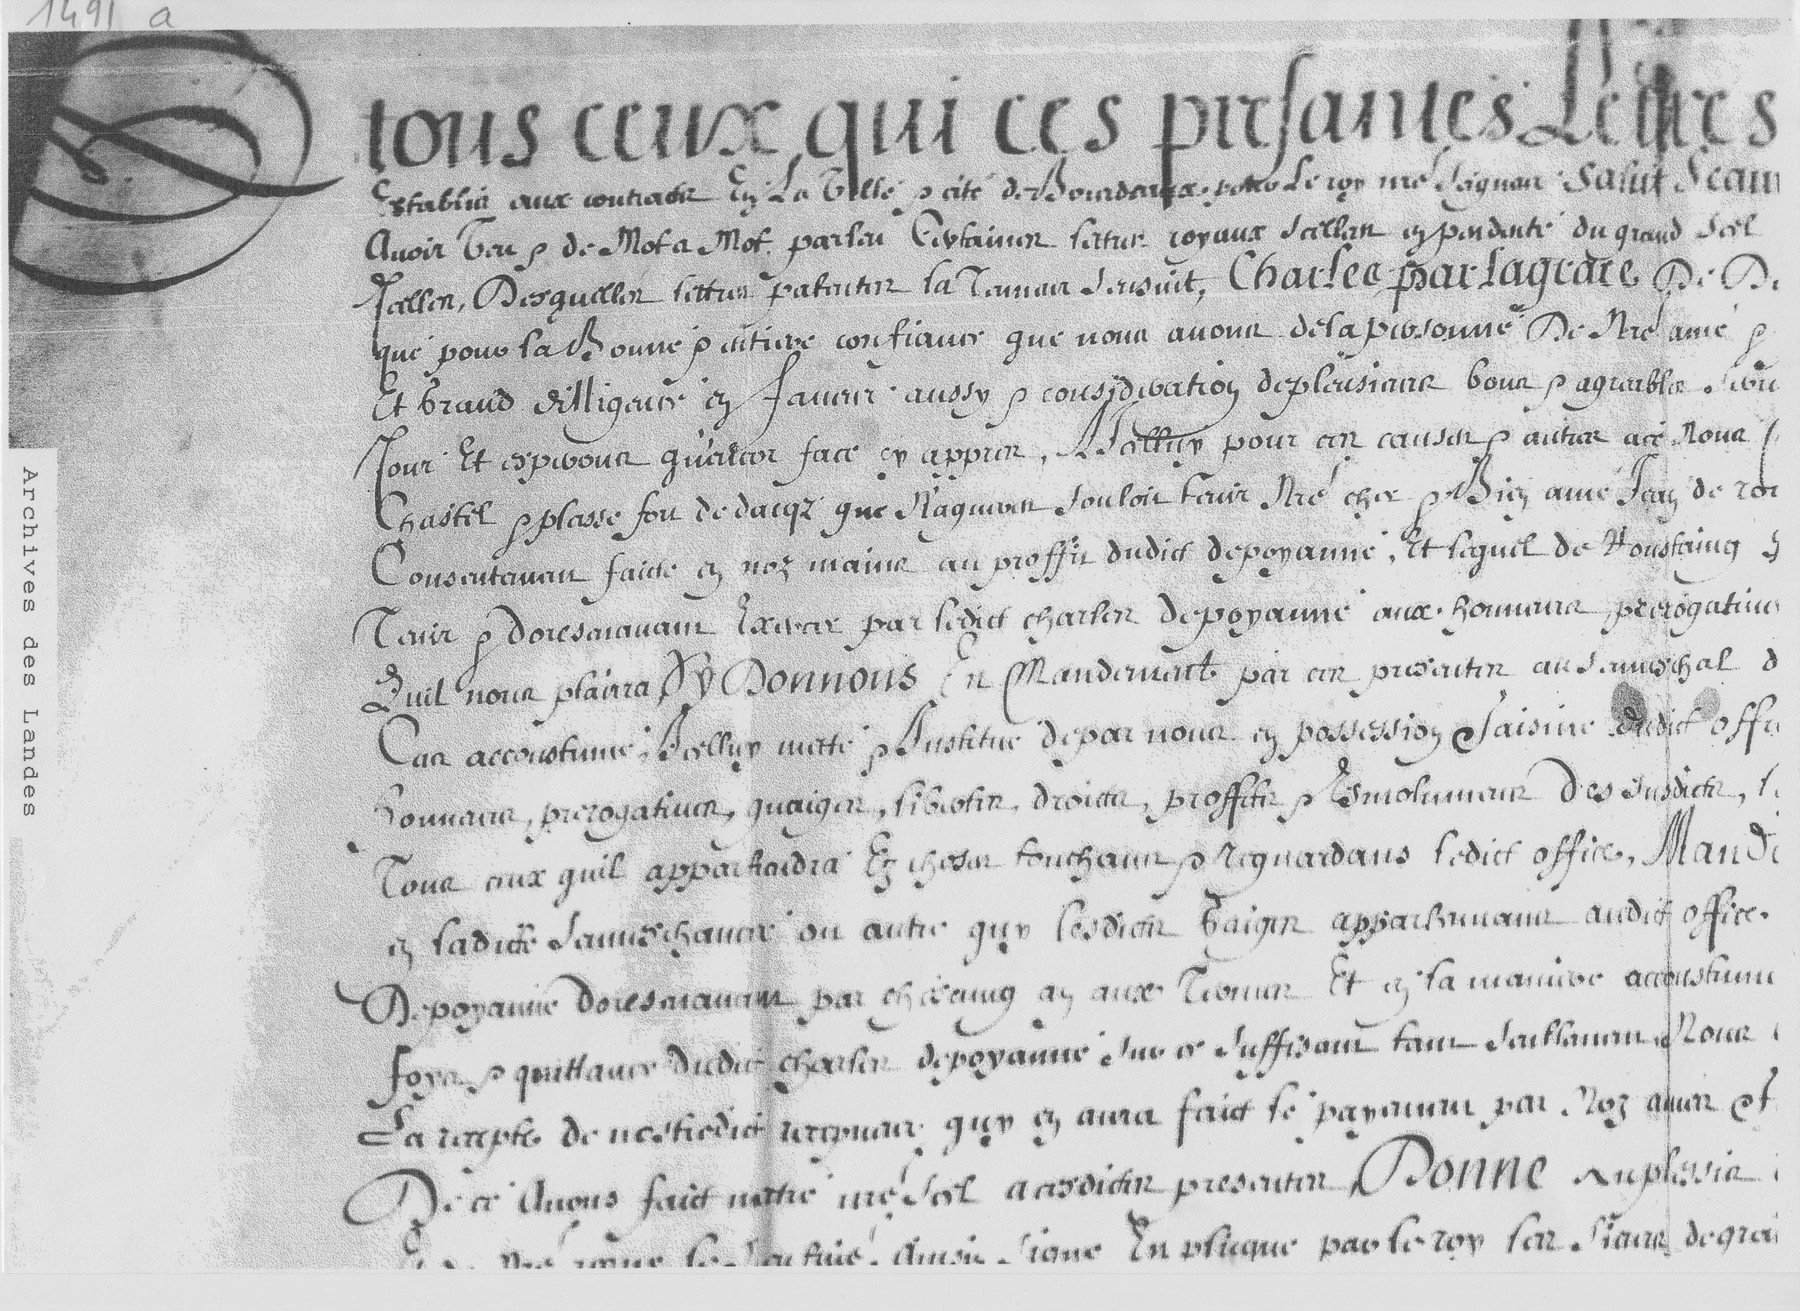 1491 a
A tous ceux qui ces presantes Lettres
Establir aux contractz En La Ville & cité de Bourdeaux pour Le roy nre seigneur Salut Scavoir
Avoir Veu & de Mot a Mot parleu Certaines lettres royaux scellees en pendente du grand Scel
Scellees, Desquelles lettres patentes la Teneur sensuit, Charles par lagrace De Di
que pour la Bonne & entiere confiance que nous avons dela personne De Nre amé &
Et grand dilligence en faveur aussy & consideration depleusieurs bons & agreables servi
Jour Et esperons quencor face cy appres, Icelluy pour ces causes & autres ace Nous
Chastel & plasse fort de dacqz que Naguieres souloit tenir Nre cher & Bien amé Jean de ro
Consentement faicte en noz mains au proffit dudict depoyanne, Et lequel de Roustaing
Tenir & doresenavant Exercer par ledict charles depoyanne aux honneurs prerogatives
Quil nous plairra Sy Donnons En Mandement par ces presentes au senneschal d
Cas accoustumé, Icelluy mette & Institue depar nous en possession & saisine dudict offi
honneurs, prerogatives, guaiges, libertes, droictz, proffitz & Esmolumens Des susdictz,
Tous ceux quil appartiendra Ez choses touchans & reguardans ledict office, Mand
en ladicte senneschaucee ou autre quy lesdictz Gaiges appartenans audict office.
Depoyanne doresenavant par chescung an aux Termes Et en la maniere accoustum
foys & quittance dudict charles depoyanne sur ce suffisant tant seullement Nous
La recepte de nostredict recepveur quy en aura faict le payement par Noz amez &
De ce Avons faict mettre nre Scel acesdictes presentes Donne Auplessis
de Nre regne le huictiesme. Ainsin Signe En plicque par le roy les sieurs degra
Archives des Landes